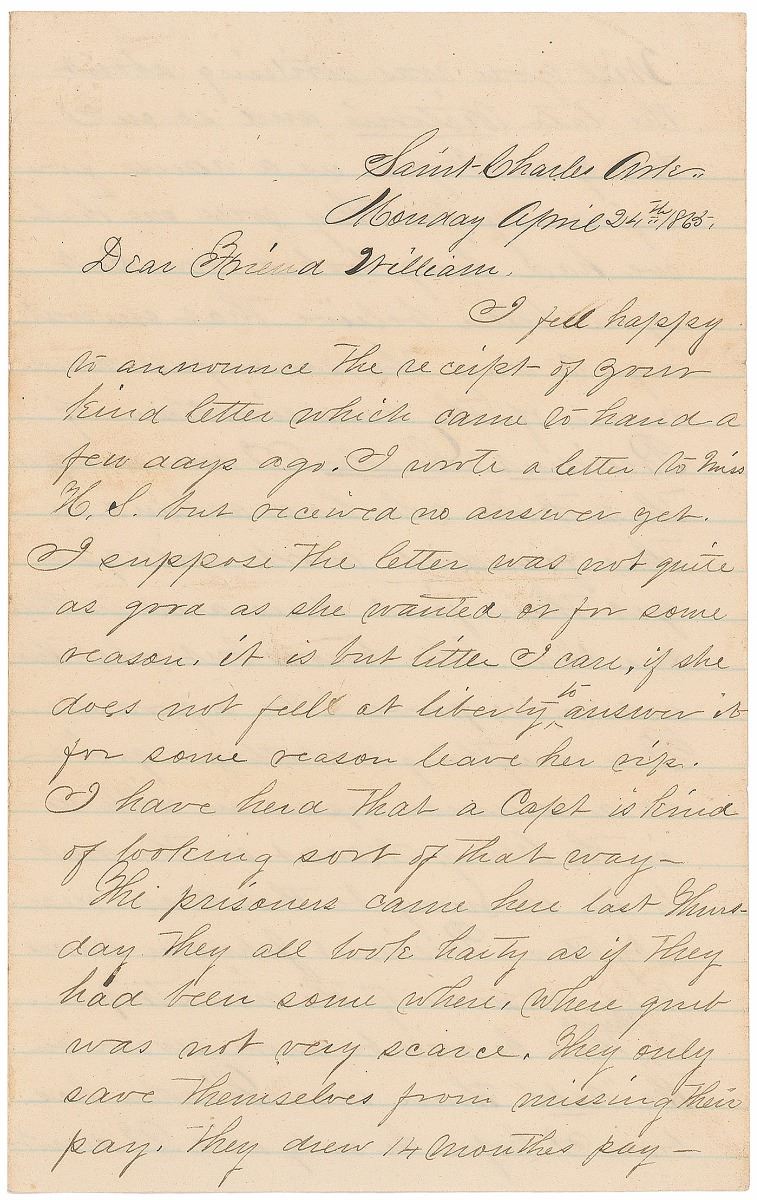 Saint Charles Ark.
Monday April 24th 1865.
Dear Friend William.
I fell happy
to announce the receipt of your
kind letter which came to hand a
few days ago. I wrote a letter to Miss
H. S. but received no answer yet.
I suppose the letter was not quite
as good as she wanted or for some
reason. it is but little I care, if she
does not fell at liberty to answer it
for some reason leave her rip.
I have herd that a Capt is kind
of looking sort of that way—
The prisoners came here last Thurs-
day they all look haity as if they
had been some where, where grub
was not very scarce. They only
save themselves from missing their
pay. they drew 14 monthes pay—